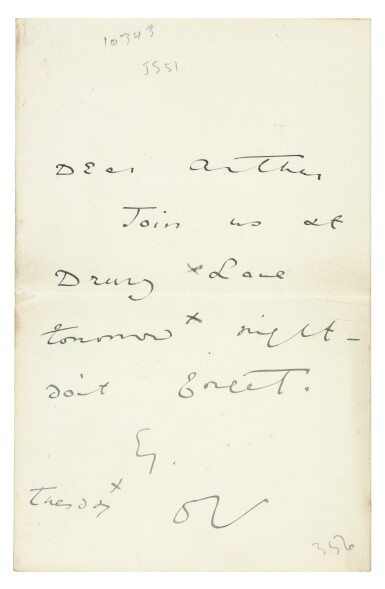 10343
JS51
Dear Arthur
Join us at
Drury x Lane
tomorrow x night –
don't forget.
Ey.
Tuesday x
OW
356